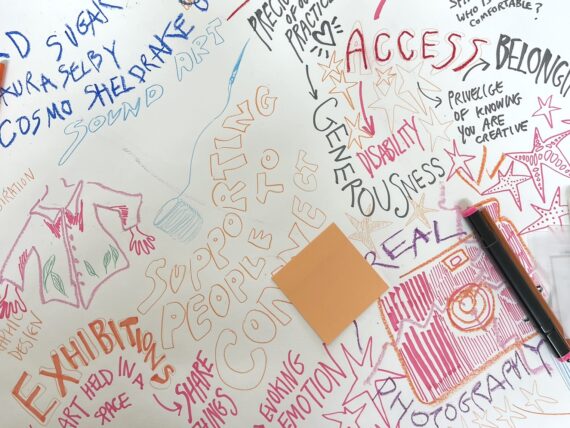 SUGAR
LAURA SELBY
COSMO SHELDRAKE
SOUND ART
PRACTICE
WHO IS
COMFORTABLE?
ACCESS
BELONGIN
PRIVELIGE
OF KNOWING
YOU ARE
CREATIVE
DISABILITY
GENEROUSNESS
SUPPORTING
PEOPLE TO
CONNECT
REAL
PHOTOGRAPHY
DESIGN
EXHIBITIONS
ART HELD IN A
SPACE
SHARE
THINGS
EVOKING
EMOTION